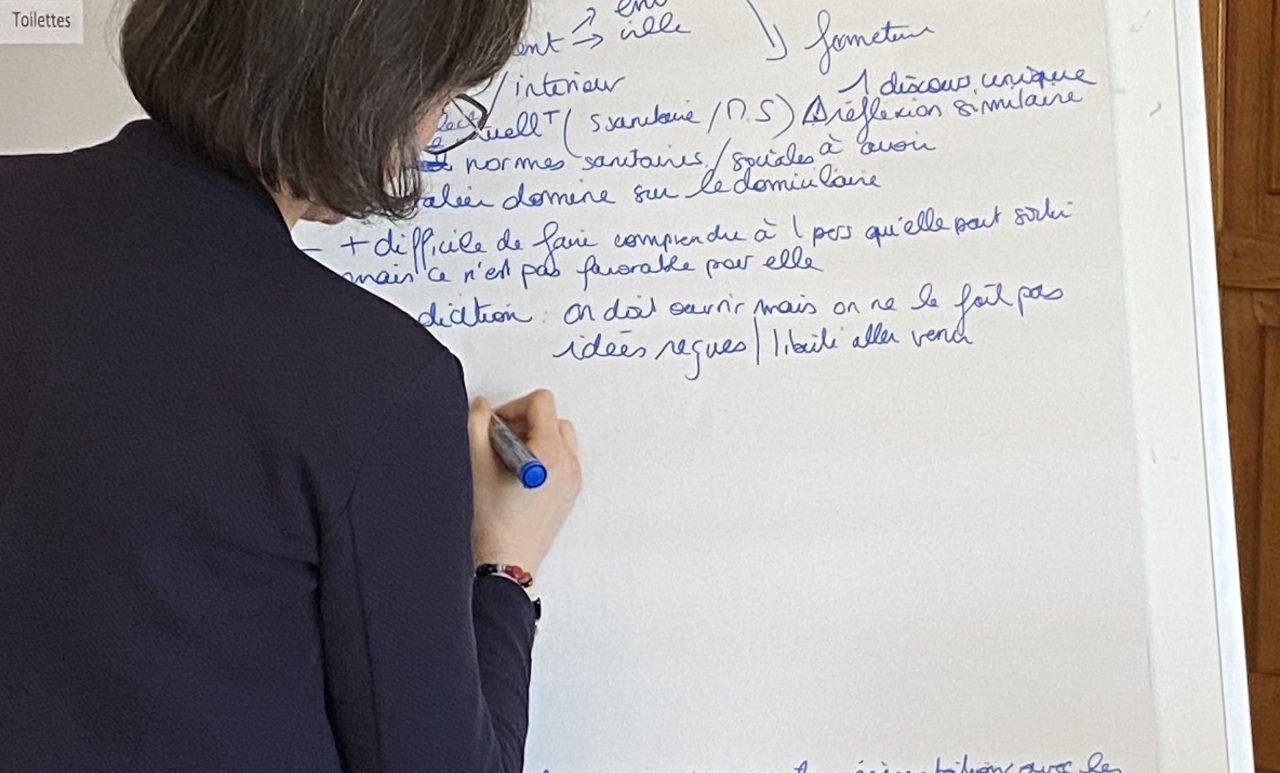 Toilettes
ent → ville
formateur
/ intérieur
1 discours unique
uellT ( ssanitaire / M.S) réflexion similaire
normes sanitaires / sociales à avoir
domine sur le domiciliaire
- + difficile de faire comprendre à 1 pers qu'elle peut sortir
mais ce n'est pas favorable pour elle
diction : on doit ouvrir mais on ne le fait pas
idées reçues / liberté aller venir
avec les